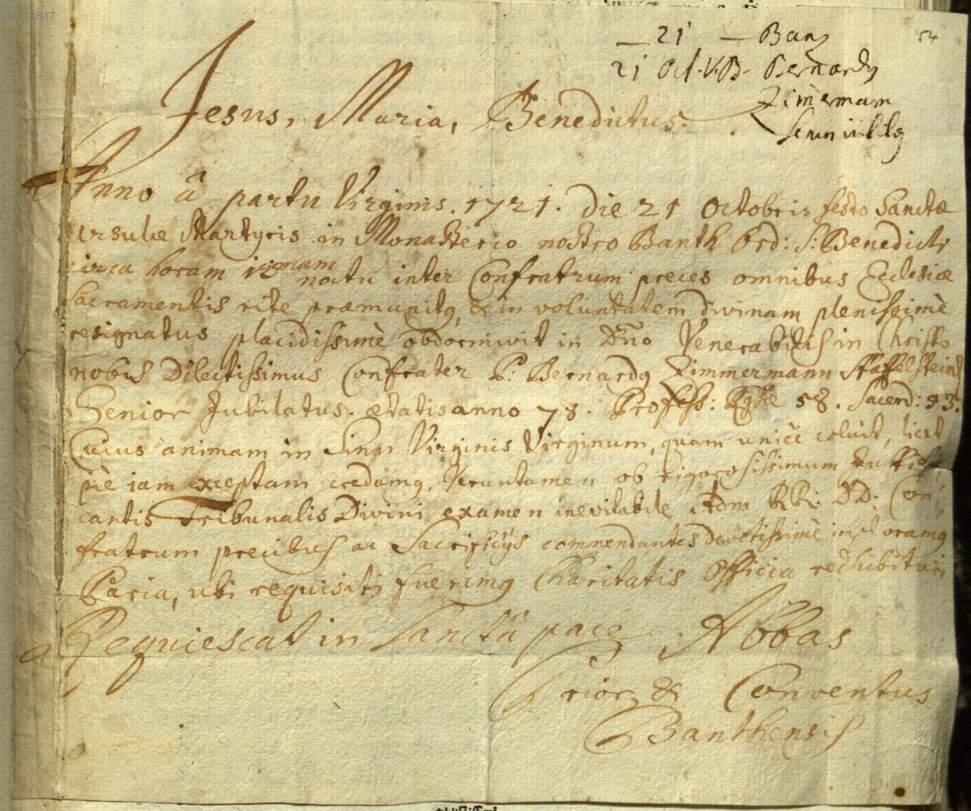 54
— 21 — Banz
21 Oct. V. B. Bernardq
Zimerman
Senn iubilq
Jesus, Maria, Benedictus.
Anno â partu Virginis. 1721. die 21 Octobris festo Sanctæ
Ursulæ Martyris in Monasterio nostro Banth Ord: S: Benedicti
circa horam
noctu inter Confratrum preces omnibus Ecclesiæ
Sacramentis rite præmunitq, & in voluntatem divinam plenissimè
resignatus placidissimè obdormivit in Dño Venerabilis in Christo
nobis Dilectissimus Confrater P. Bernardq Zimmermann Staffelsteinẽs
Senior Jubilatus. ætatis anno 78. Profess: 58. Sacerd: 53.
Cuius animam in Sinu Virginis Virginum, quam unicè coluit, licet
piè iam exceptam credamq, Veruntamen ob rigorosissimum
cantis Tribunalis Divini examen inevitabile Adm RR. DD: Con
fratrum precibus ac Sacrificijs commendantes devotissimè oramq
Paria, ubi requisiti fuerimq Charitatis Officia redhibituri
Requiescat in Sanctâ pace. Abbas
Prior & Conventus
Banthensis